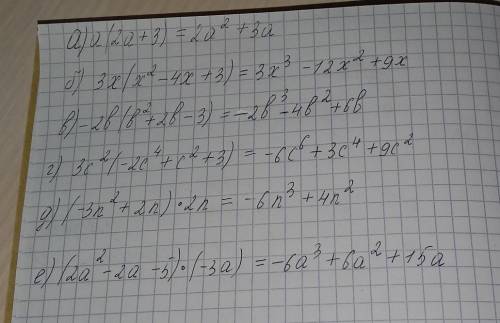 а) а(2а+3) = 2а² + 3а
б) 3x(x² - 4x + 3) = 3x³ - 12x² + 9x
в) -2b(b² + 2b - 3) = -2b³ - 4b² + 6b
г) 3c²(-2c⁴ + c² + 3) = -6c⁶ + 3c⁴ + 9c²
д) (-3n² + 2n) · 2n = -6n³ + 4n²
е) (2а² - 2а - 5) · (-3а) = -6а³ + 6а² + 15а